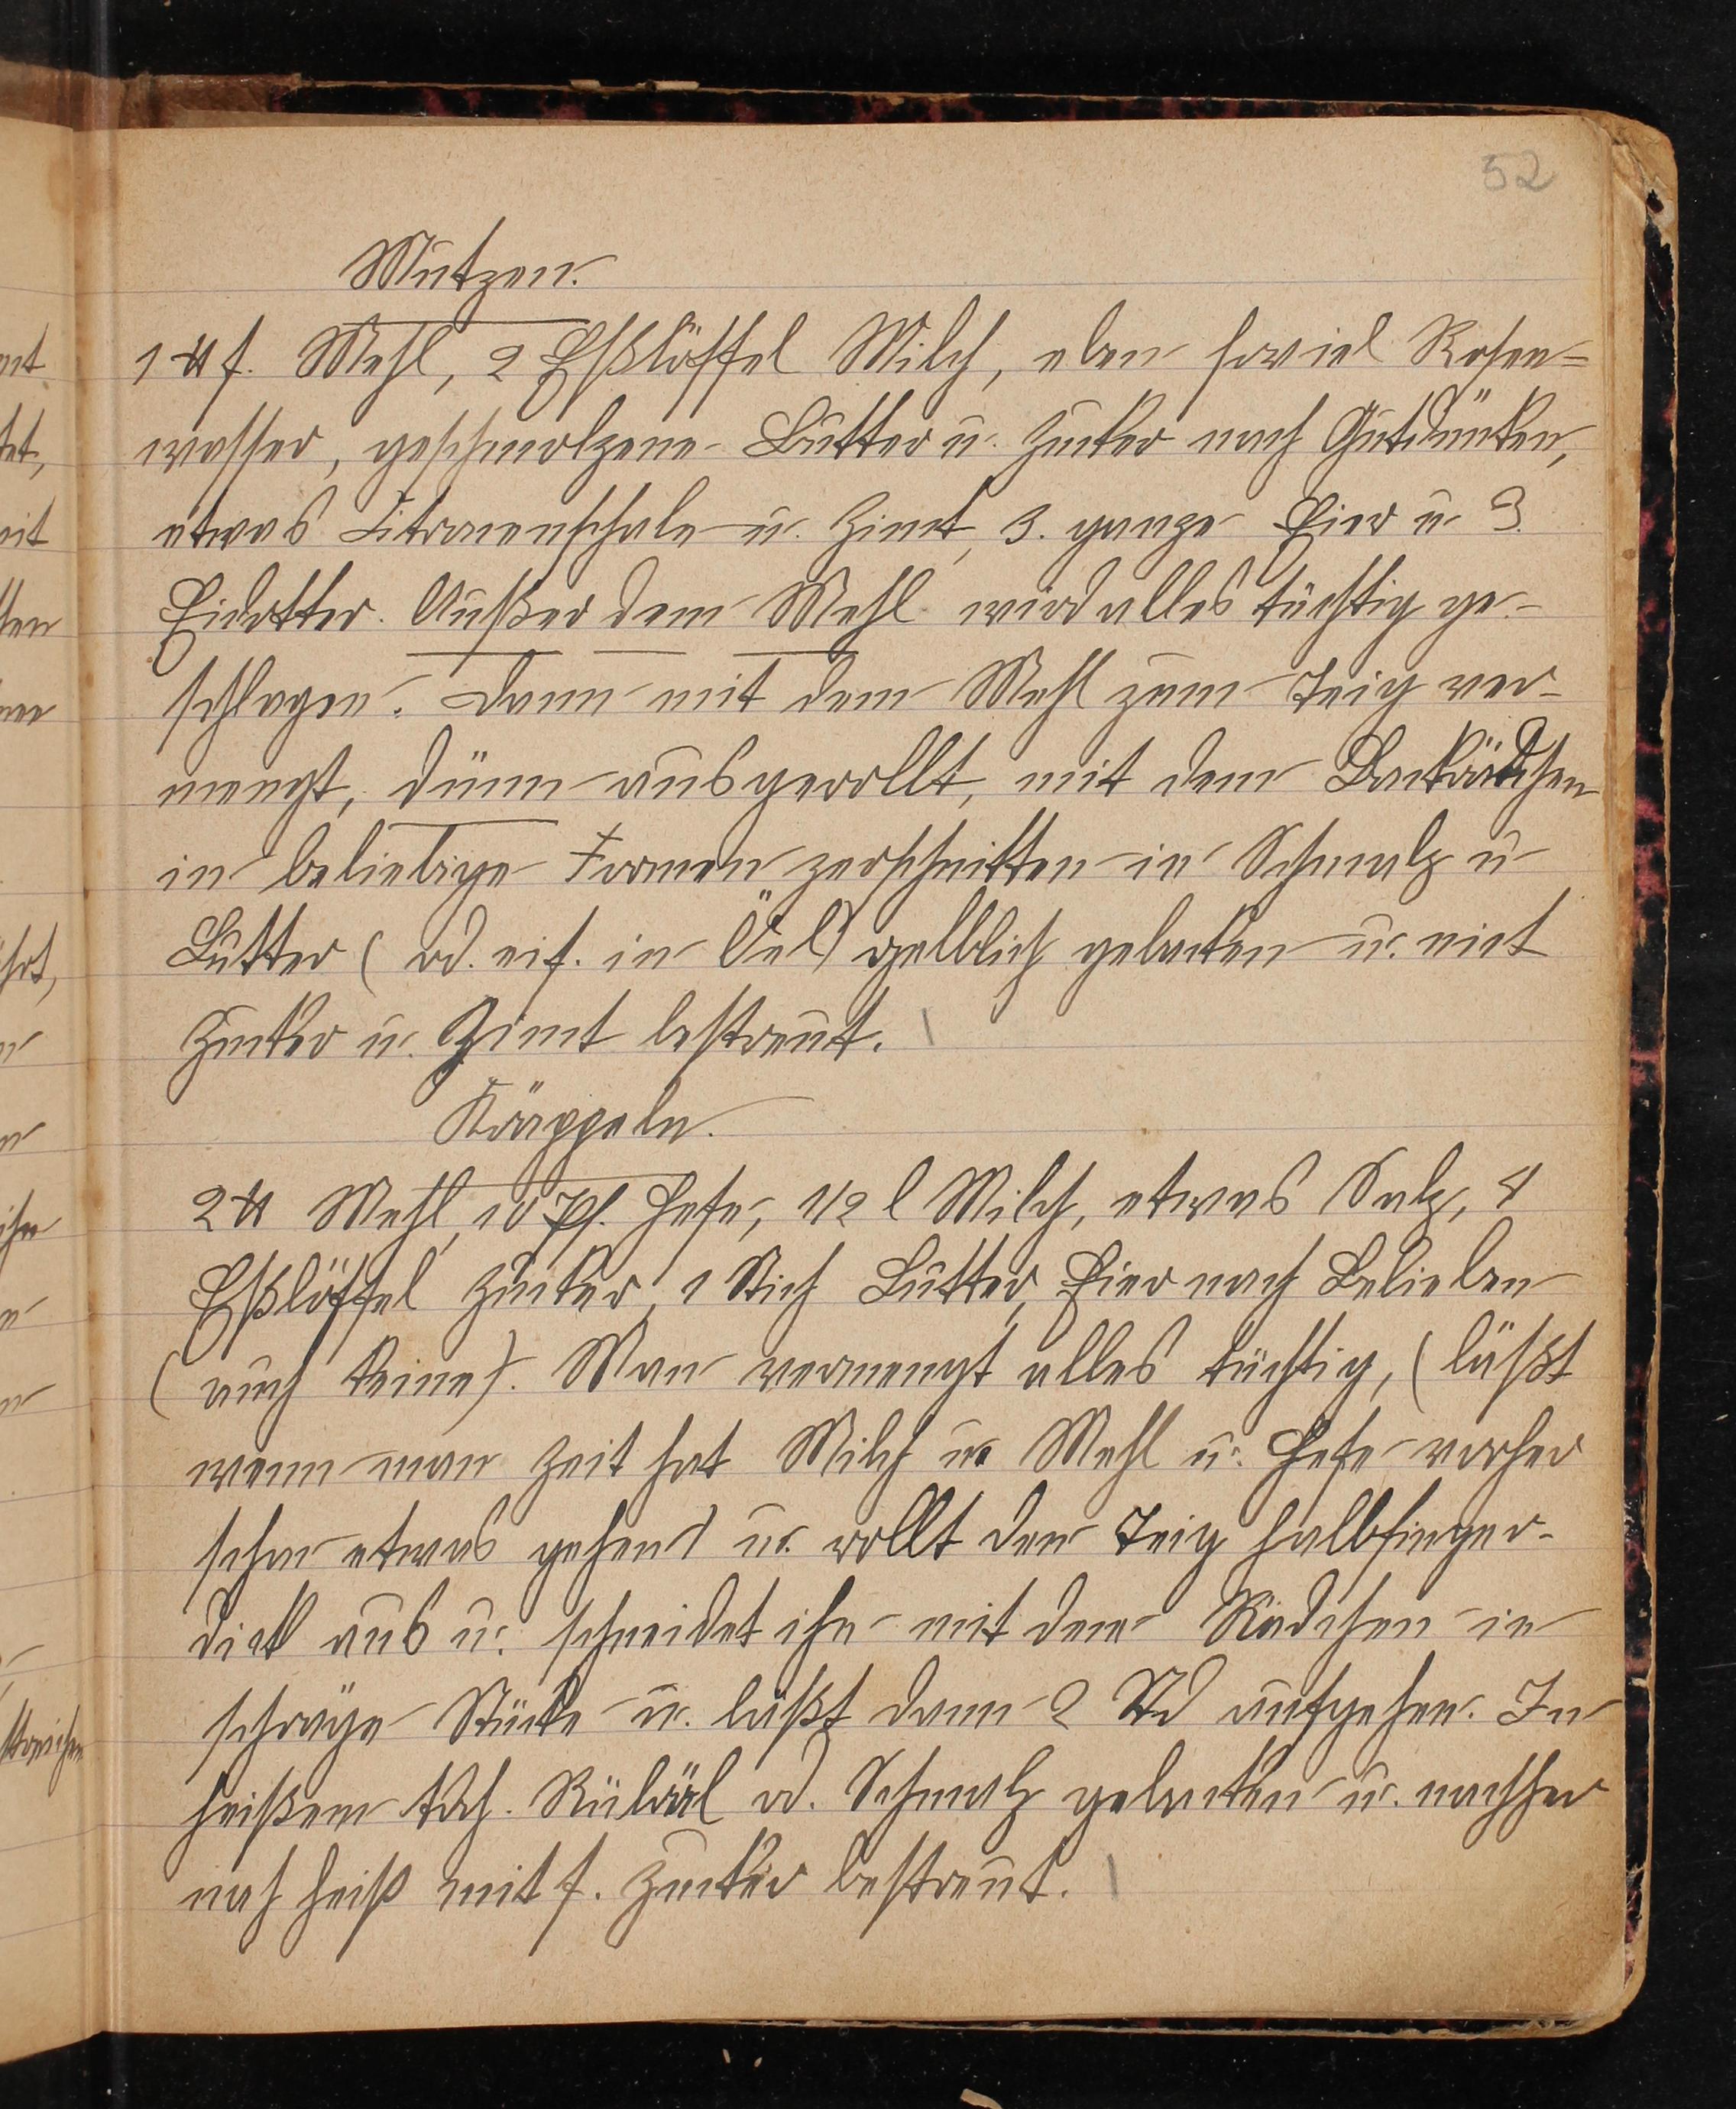 52
Mutzen.
1 ℔ f. Mehl, 2 Eßlöffel Milch, eben soviel Rosen=
wasser, geschmolzene Butter u. Zucker nach Gutdünken,
etwas Citronenschale u. Zimt, 3. ganze Eier u 3
Eidotter. Außer dem Mehl wird alles tüchtig ge-
schlagen. Dann mit dem Mehl zum Teig ver-
mengt, dünn ausgerollt, mit dem Backrädchen
in beliebige Formen zerschnitten in Schmalz u
Butter ( od. in Öel) gelblich gebacken u. mit
Zucker u. Zimt bestreut.
Kräppeln.
2 ℔ Mehl, 10 Pf. Hefe, 1/2 l Milch, etwas Salz, 4
Eßlöffel Zucker, 1 Stich Butter, Eier nach Belieben
( auch keine). Man vermengt alles tüchtig, ( läßt
wenn man Zeit hat Milch u Mehl u. Hefe vorher
schon etwas gehen) u. rollt den Teig halbfinger-
dick aus u. schneidet ihn mit dem Rädchen in
schräge Stücke u. läßt dann 2 Std aufgehen. In
heißem Rüböl od. Schmalz gebacken u. nachher
noch heiß mit f. Zucker bestreut.